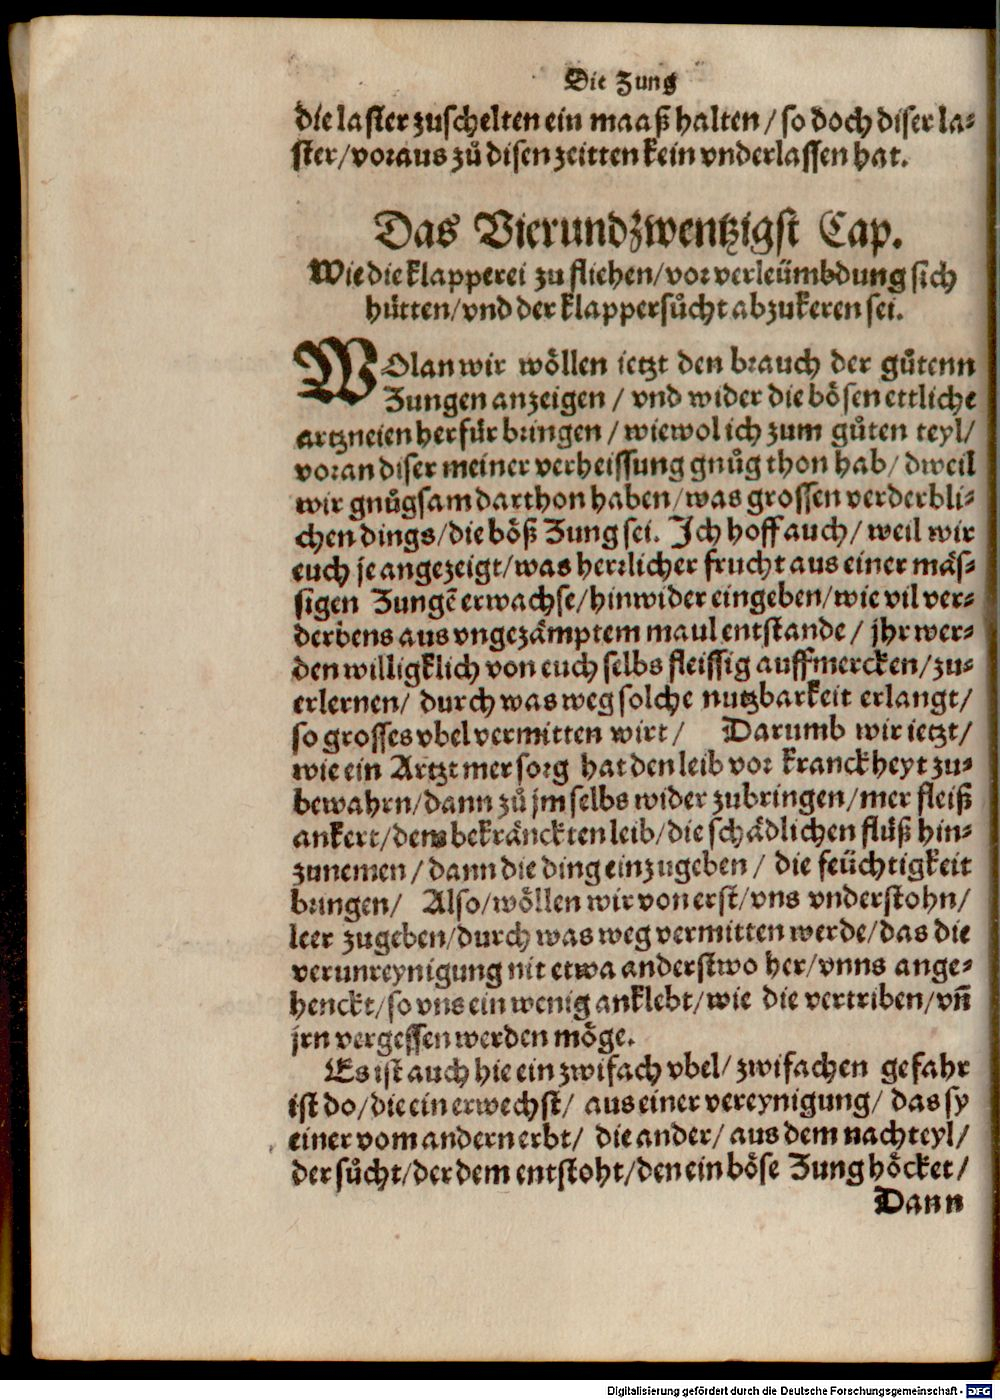 Die Zung
die laster zuschelten ein maaß halten / so doch diser la-
ster / voraus zů disen zeitten kein vnderlassen hat.
Das Vierundzwentzigst Cap.
Wie die klapperei zu fliehen / vor verleümbdung sich
hütten / vnd der klappersůcht abzukeren sei.
WOlan wir wöllen ietzt den brauch der gůtenn
Zungen anzeigen / vnd wider die bösen ettliche
artzneien herfür bringen / wiewol ich zum gůten teyl /
voran diser meiner verheissung gnůg thon hab / dweil
wir gnůgsam darthon haben / was grossen verderbli-
chen dings / die böß Zung sei. Ich hoff auch / weil wir
euch je angezeigt / was herrlicher frucht aus einer mäs-
sigen Zungẽ erwachse / hinwider eingeben / wie vil ver-
derbens aus vngezämptem maul entstande / jhr wer-
den willigklich von euch selbs fleissig auffmercken / zu-
erlernen / durch was weg solche nutzbarkeit erlangt /
so grosses vbel vermitten wirt / Darumb wir ietzt /
wie ein Artzt mer sorg hat den leib vor kranckheyt zu-
bewahrn / dann zů jm selbs wider zubringen / mer fleiß
ankert / dem bekränckten leib / die schädlichen flüß hin-
zunemen / dann die ding einzugeben / die feüchtigkeit
bringen / Also / wöllen wir von erst / vns vnderstohn /
leer zugeben / durch was weg vermitten werde / das die
verunreynigung nit etwa anderstwo her / vnns ange-
henckt / so vns ein wenig anklebt / wie die vertriben / vñ
jrn vergessen werden möge.
Es ist auch hie ein zwifach vbel / zwifachen gefahr
ist do / die ein erwechst / aus einer vereynigung / das sy
einer vom andern erbt / die ander / aus dem nachteyl /
der sůcht / der dem entstoht / den ein böse Zung höcket /
Dann
Digitalisierung gefördert durch die Deutsche Forschungsgemeinschaft - DFG